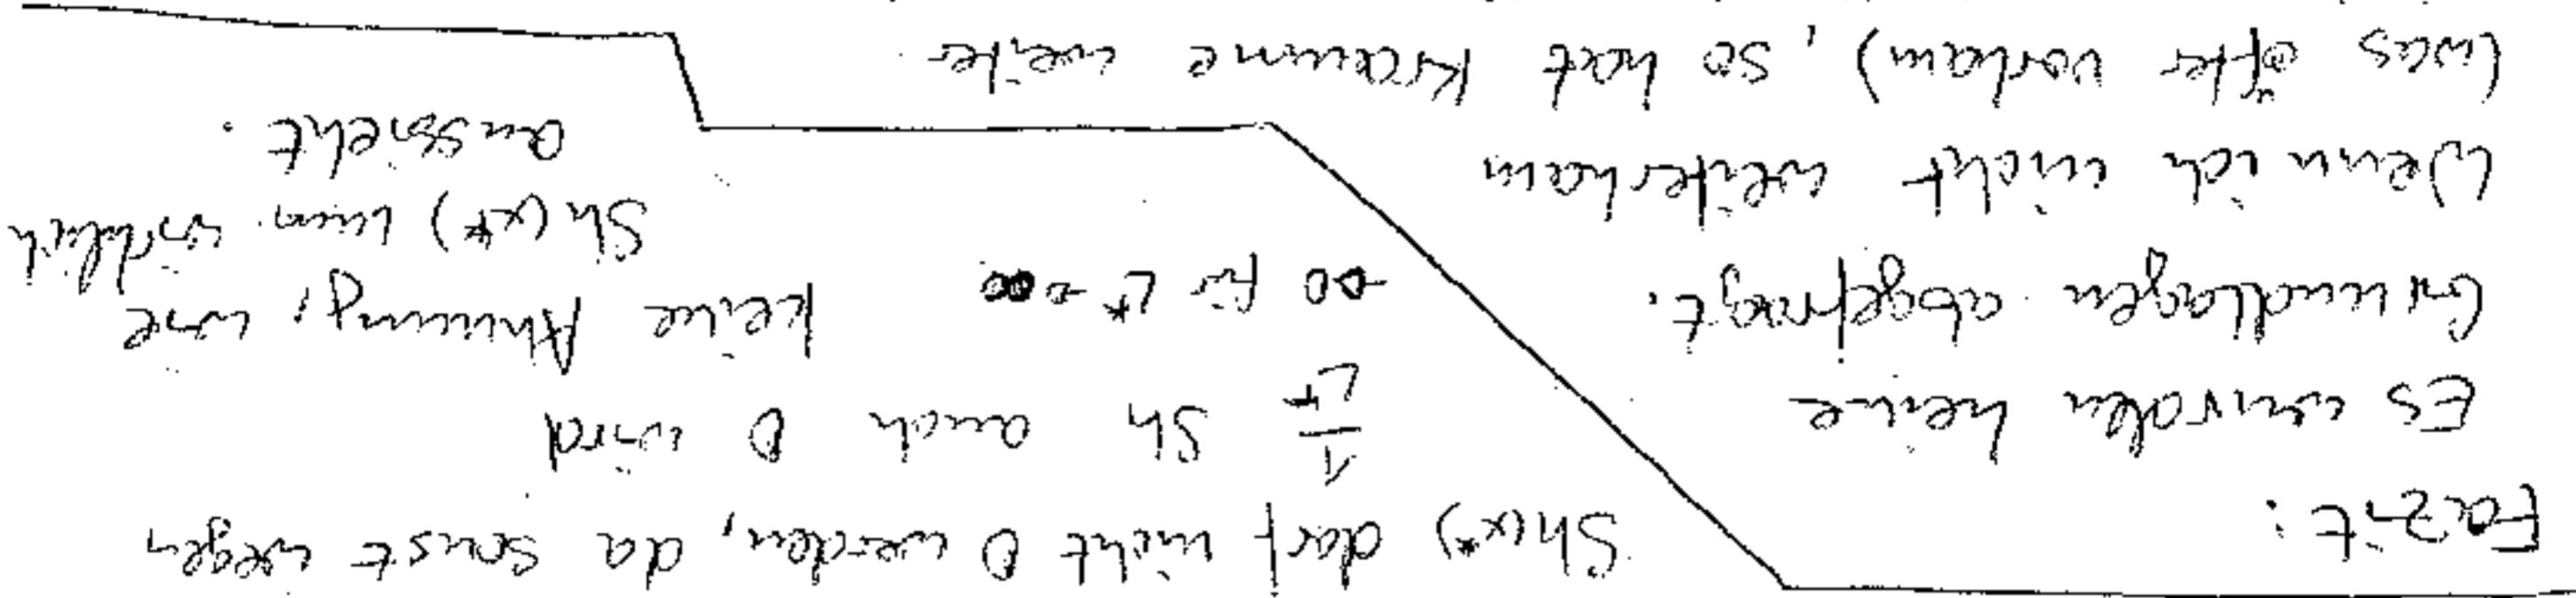 Fazit:
Es wurden keine
Grundlagen abgefragt.
Wenn ich nicht weiterkam
(was öfter vorkam), so hat Kraume weiter
Sh(x*) darf nicht 0 werden, da sonst wegen
1/L* Sh auch 0 wird
→0 für L*→∞ keine Ahnung, wie
Sh(x*) nun wirklich
aussieht.